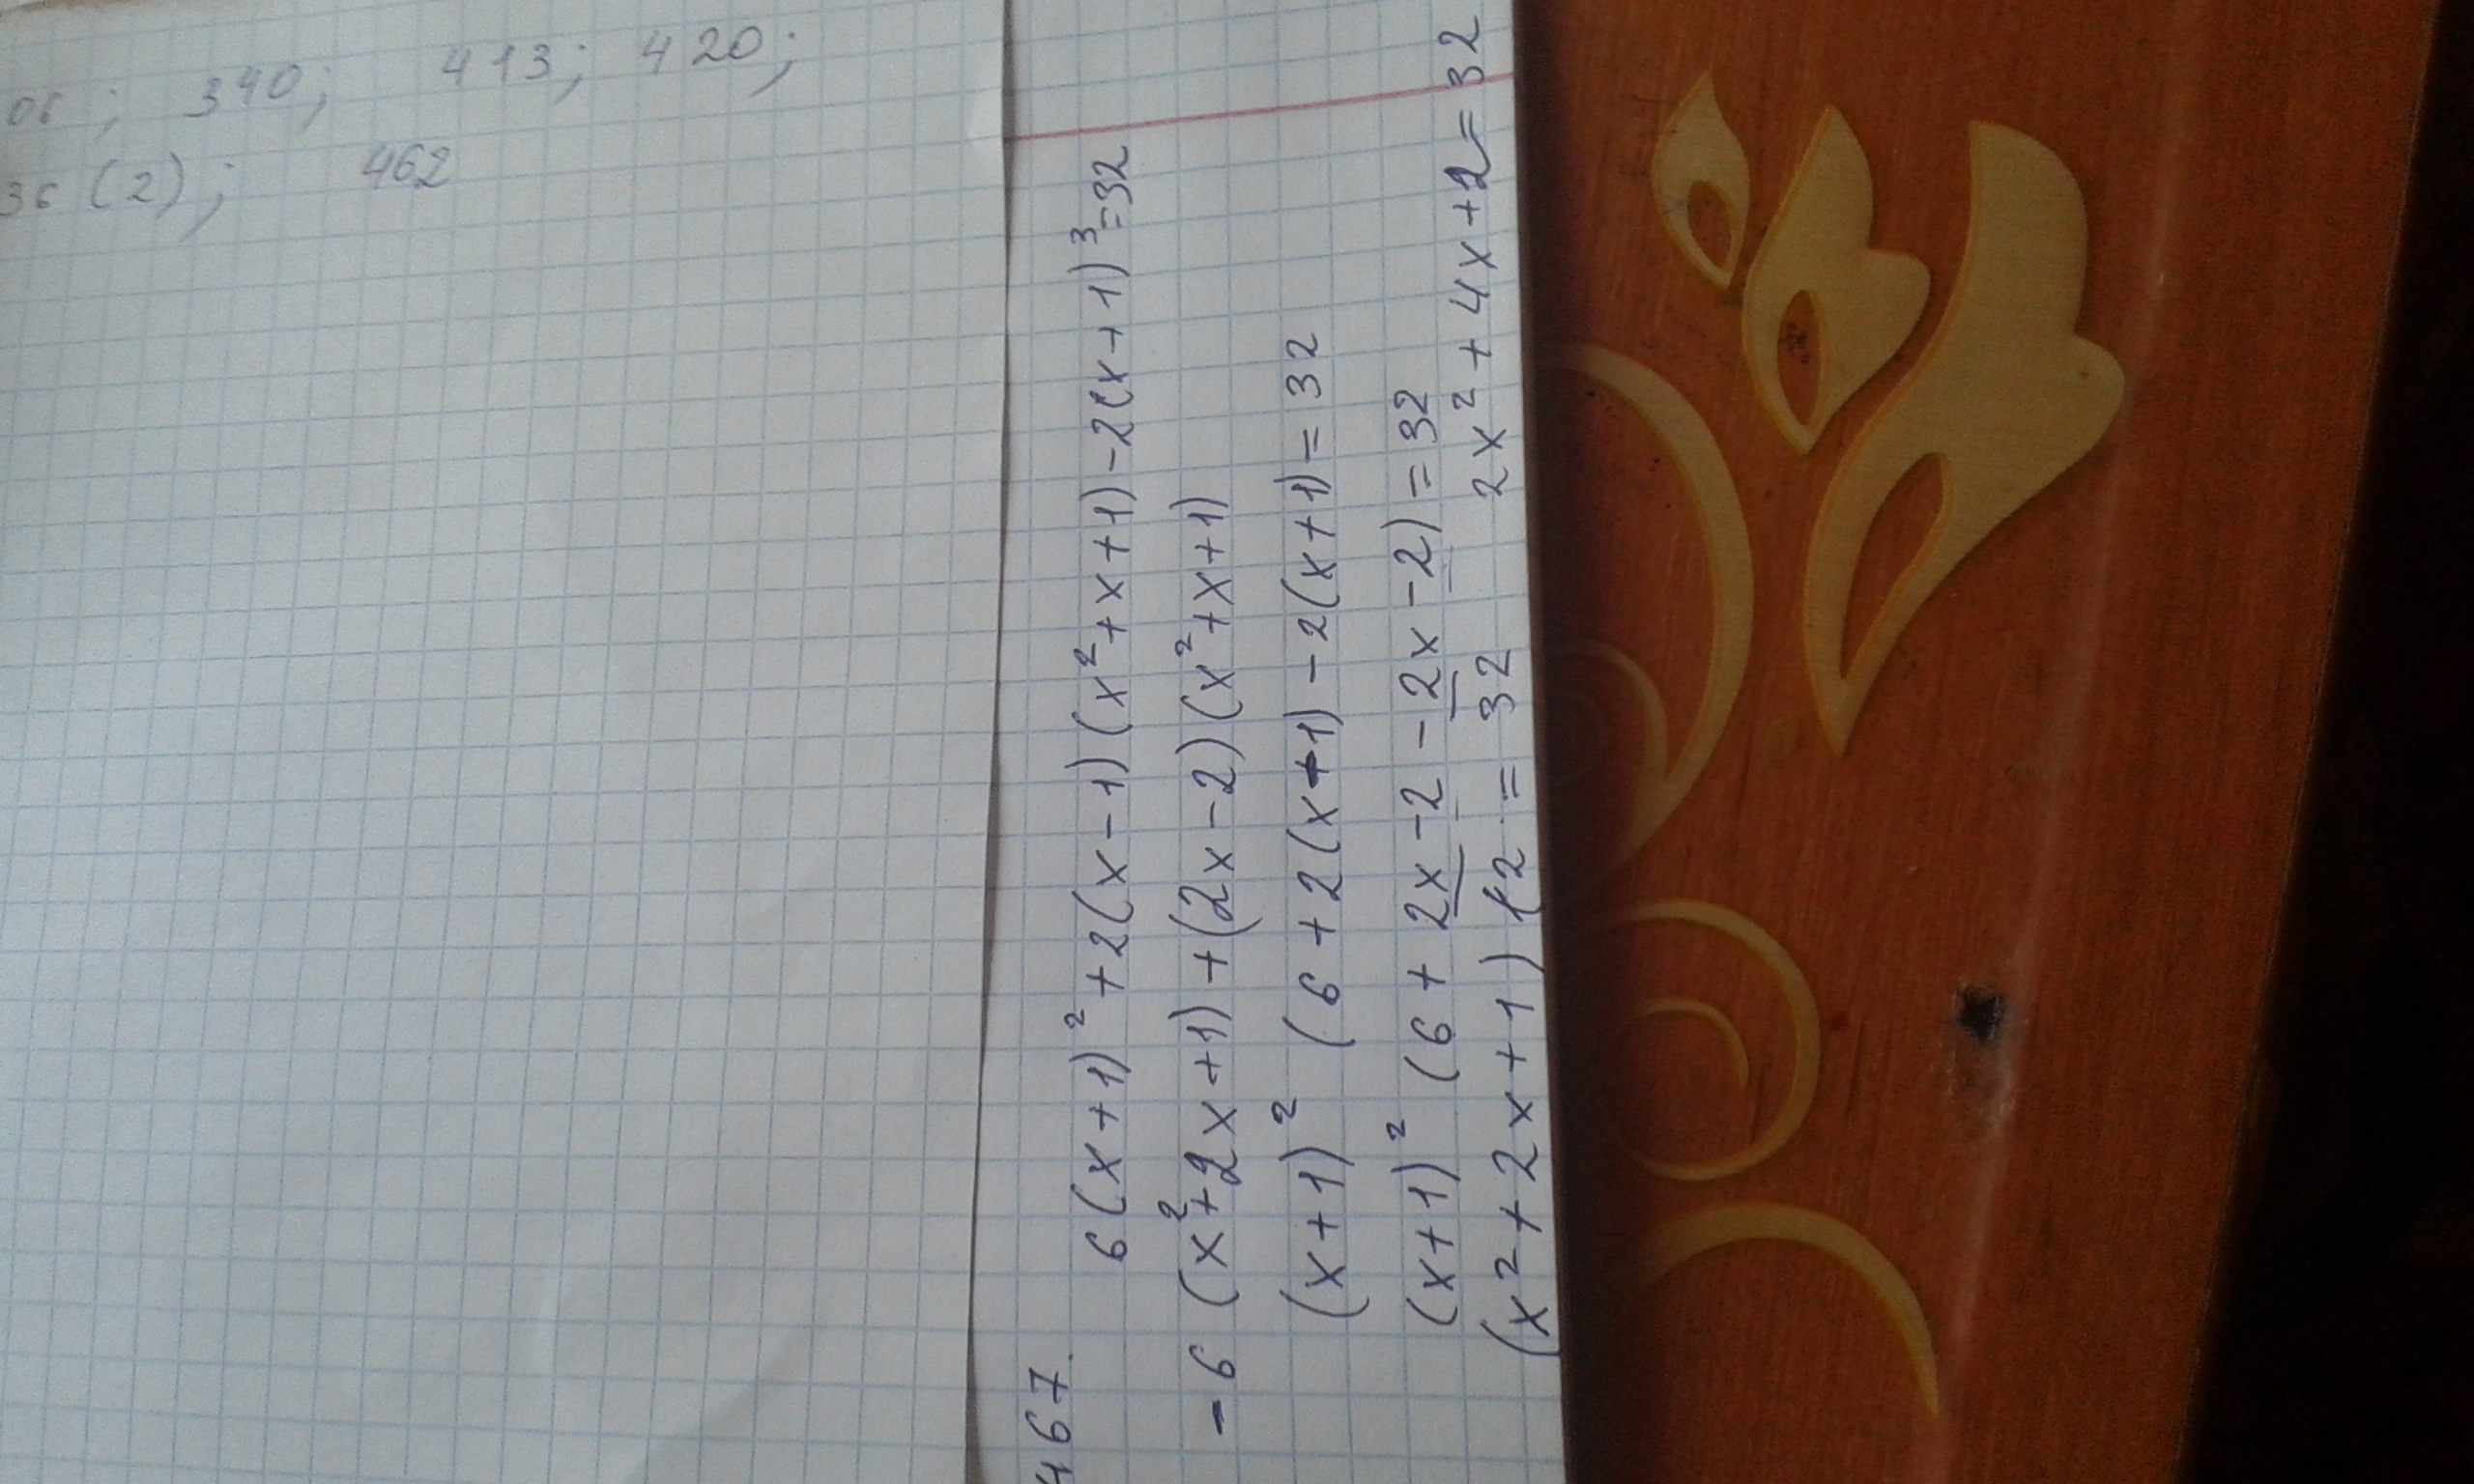 06; 340; 413; 420;
36 (2); 462
467.
6(x+1)² + 2(x-1)(x²+x+1) - 2(x+1)³ = 32
- 6(x²+2x+1) + (2x-2)(x²+x+1)
(x+1)² (6+2(x-1) - 2(x+1) = 32
(x+1)² (6+2x-2-2x-2) = 32
(x²+2x+1) 2 = 32 2x²+4x+2 = 32